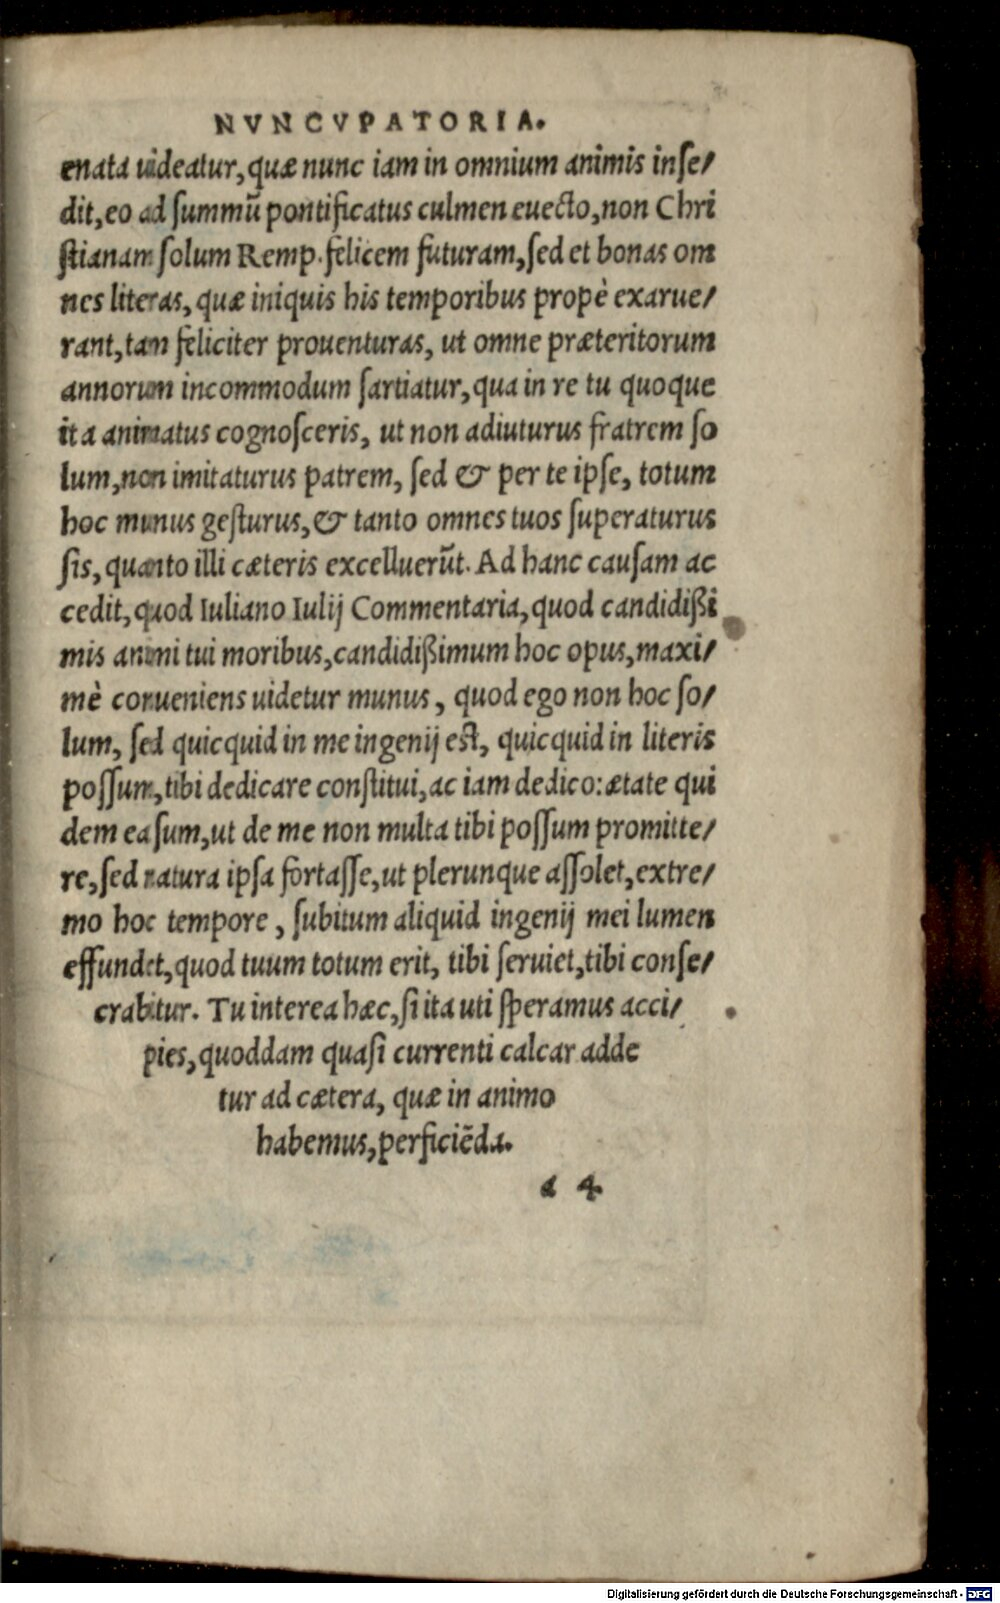 NVNCVPATORIA.
enata uideatur, quæ nunc iam in omnium animis inſe/
dit, eo ad ſummũ pontificatus culmen euecto, non Chri
ſtianam ſolum Remp. felicem futuram, ſed et bonas om
nes literas, quæ iniquis his temporibus propè exarue/
rant, tam feliciter prouenturas, ut omne præteritorum
annorum incommodum ſartiatur, qua in re tu quoque
ita animatus cognoſceris, ut non adiuturus fratrem ſo
lum, non imitaturus patrem, ſed & per te ipſe, totum
hoc munus geſturus, & tanto omnes tuos ſuperaturus
ſis, quanto illi cæteris excelluerũt. Ad hanc cauſam ac
cedit, quod Iuliano Iulij Commentaria, quod candidißi
mis animi tui moribus, candidißimum hoc opus, maxi/
mè conueniens uidetur munus, quod ego non hoc ſo/
lum, ſed quicquid in me ingenij eſt, quicquid in literis
poſſum, tibi dedicare conſtitui, ac iam dedico: ætate qui
dem ea ſum, ut de me non multa tibi poſſum promitte/
re, ſed natura ipſa fortaſſe, ut plerunque aſſolet, extre/
mo hoc tempore, ſubitum aliquid ingenij mei lumen
effundet, quod tuum totum erit, tibi ſeruiet, tibi conſe/
crabitur. Tu interea hæc, ſi ita uti ſperamus acci/
pies, quoddam quaſi currenti calcar adde
tur ad cætera, quæ in animo
habemus, perficiẽda.
a 4
Digitalisierung gefördert durch die Deutsche Forschungsgemeinschaft - DFG